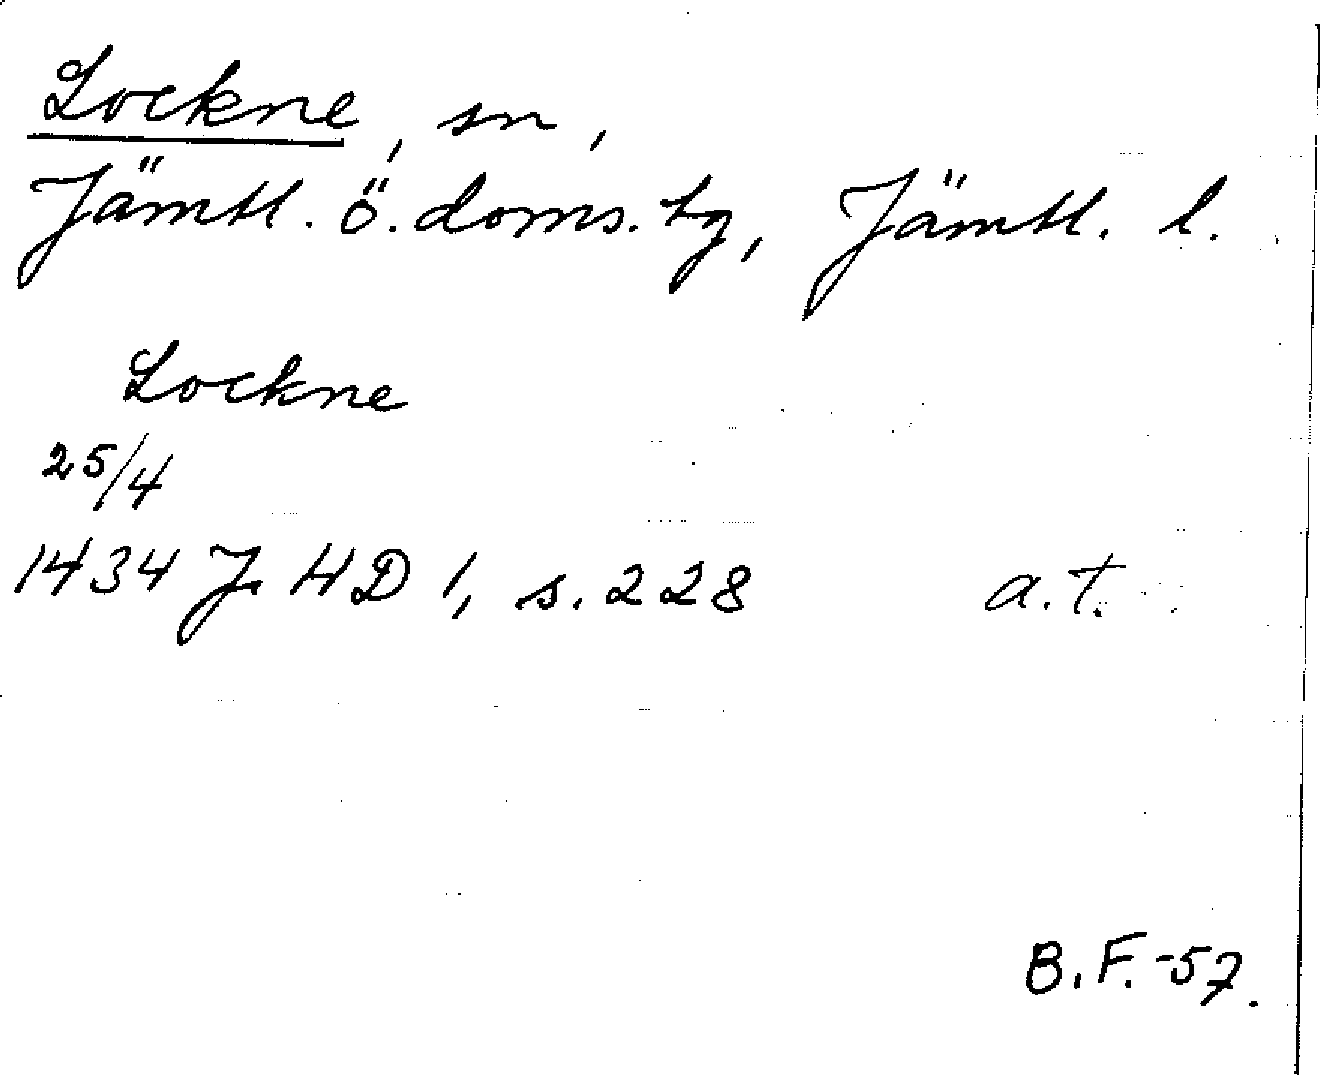 Lockne, sn,
Jämtl. ö. doms. tg, Jämtl. l.
Lockne
25/4
1434 J. HD 1, s. 228 a.t.
B.F.-57.